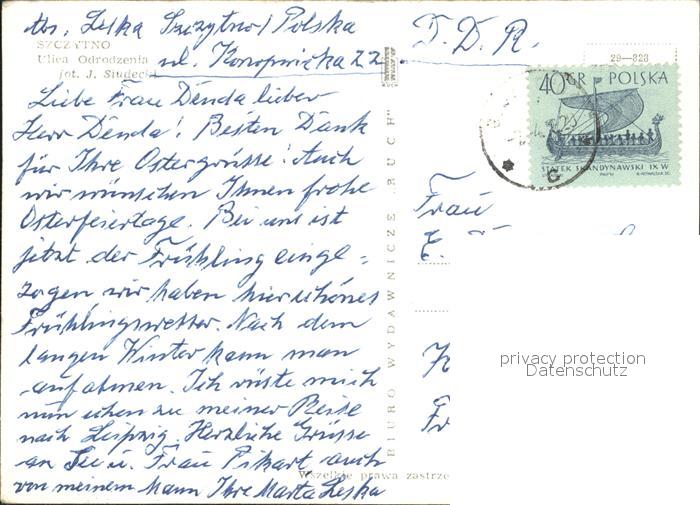 Abs. Leska Szczytno / Polska
ul. Konopnicka 22
SZCZYTNO
Ulica Odrodzenia
fot. J. Siudecki
Liebe Frau Denda lieber
Herr Denda! Besten Dank
für Ihre Ostergrüsse! Auch
wir wünschen Ihnen frohe
Osterfeiertage. Bei uns ist
jetzt der Frühling einge=
zogen wir haben hier schönes
Frühlingswetter. Nach dem
langen Winter kann man
aufatmen. Ich rüste mich
nun schon zu meiner Reise
nach Leipzig. Herzliche Grüsse
an Sie u. Frau Pikart auch
von meinem Mann Ihre Marta Leska
BIURO WYDAWNICZE „RUCH"
Wszelkie prawa zastrze
D. D. R.
29—828
40 GR POLSKA
STATEK SKANDYNAWSKI IX W.
C
Frau
E.
Fr
privacy protection
Datenschutz